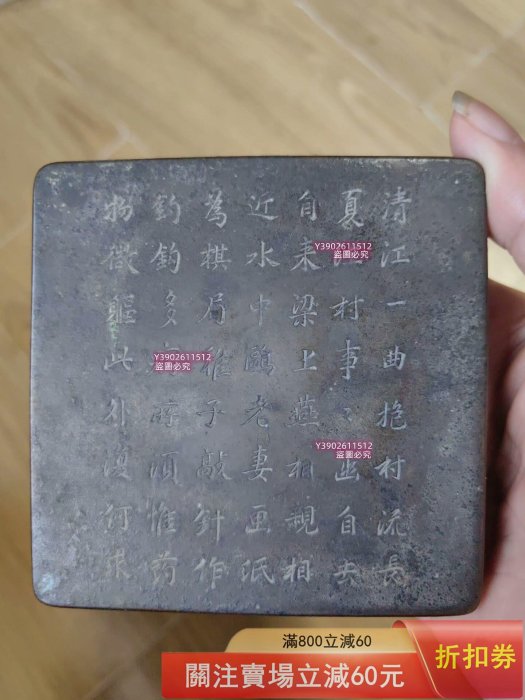 清江一曲抱村流長
夏村事〻幽自去
自来梁上燕相親相
近水中鷗老妻画紙
為棋局稚子敲針作
釣鈎多所須惟药
物微軀此外復何求
Y3902611512
盜圖必究
Y3902611512
盜圖必究
Y3902611512
盜圖必究
滿800立減60
關注賣場立減60元
折扣券